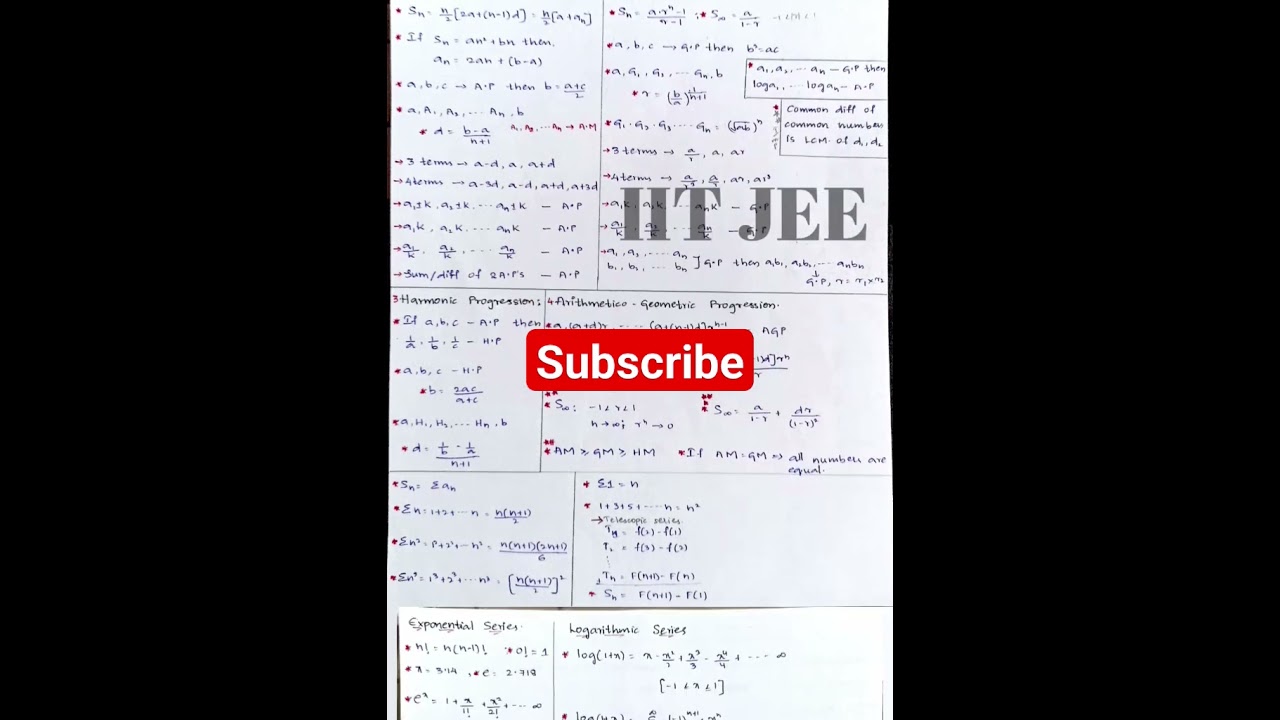 * Sn = n/2 [2a+(n-1)d] = n/2 [a+an]
* If Sn = an²+bn then,
an = 2an + (b-a)
* a, b, c → A.P then b = a+c/2
* a, A1, A2, ... An, b
* d = b-a/n+1 A1, A2, ... An → A.M
→ 3 terms → a-d, a, a+d
→ 4 terms → a-3d, a-d, a+d, a+3d
→ a1±k, a2±k, ... an±k – A.P
→ a1k, a2k, ... ank – A.P
→ a1/k, a2/k, ... an/k – A.P
→ Sum/diff of 2 A.P's – A.P
* Sn = a.rⁿ-1/r-1 ; * S∞ = a/1-r -1<r<1
* a, b, c → G.P then b²=ac
* a, G1, G2, ... Gn, b
* r = (b/a)^1/n+1
* G1.G2.G3 .... Gn = (√ab)ⁿ
→ 3 terms → a/r, a, ar
→ 4 terms → a/r³, a/r, ar, ar³
→ a1k, a2k, ... ank – G.P
→ a1/k, a2/k, ... an/k – G.P
→ a1, a2, ... an
b1, b2, ... bn ] G.P then a1b1, a2b2, ... anbn
↓
G.P, r = r1×r2
* a1, a2, ... an – G.P then
loga1, ... logan – A.P
* Common diff of
common numbers
is LCM of d1, d2
IIT JEE
3 Harmonic Progression:
* If a, b, c – A.P then
1/a, 1/b, 1/c – H.P
* a, b, c – H.P
* b = 2ac/a+c
* a, H1, H2, ... Hn, b
* d = 1/b - 1/a/n+1
4 Arithmetico - Geometric Progression.
* a, (a+d)r, ..... (a+(n-1)d]rⁿ⁻¹ AGP
Subscribe
* S∞ ; -1<r<1
n→∞ ; rⁿ→0
* S∞ = a/1-r + dr/(1-r)²
* AM ≥ GM ≥ HM * If AM = GM ⇒ all numbers are
equal.
* Sn = Σan
* Σn = 1+2+...n = n(n+1)/2
* Σn² = 1²+2²+...n² = n(n+1)(2n+1)/6
* Σn³ = 1³+2³+...n³ = [n(n+1)/2]²
* Σ1 = n
* 1+3+5+.....n = n²
→ Telescopic series.
= f(2) - f(1)
T2 = f(3) - f(2)
⋮
Tn = F(n+1) - F(n)
* Sn = F(n+1) - F(1)
Exponential Series.
* n! = n(n-1)! * 0! = 1
* π = 3.14 , * e = 2.718
* eˣ = 1 + x/1! + x²/2! + ... ∞
Logarithmic Series
* log(1+x) = x - x²/2 + x³/3 - x⁴/4 + ... ∞
[-1 < x ≤ 1]